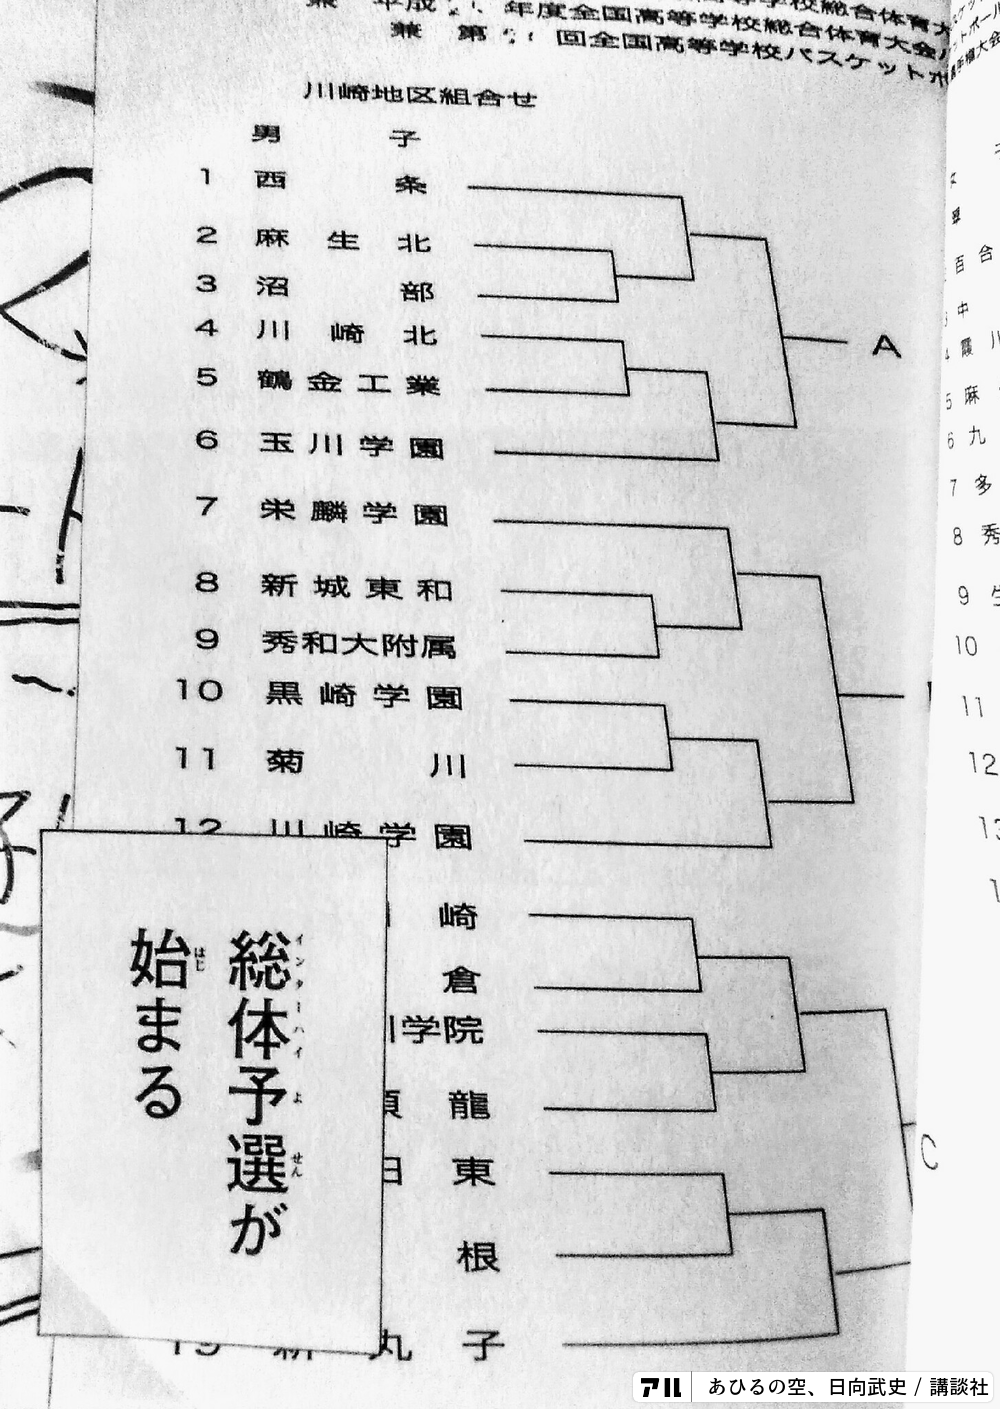 高等学校総合体育大
兼 平成 年度全国高等学校総合体育大会
兼 第 回全国高等学校バスケットボ
川崎地区組合せ
男 子
1 西 条
2 麻 生 北
3 沼 部
4 川 崎 北
5 鶴 金 工 業
6 玉 川 学 園
7 栄 麟 学 園
8 新 城 東 和
9 秀和大附属
10 黒 崎 学 園
11 菊 川
12 川 崎 学 園
崎
倉
川学院
龍
東
根
19 新 丸 子
A
C
総体予選が
インターハイよせん
始まる
はじ
百 合
中
霞 川
5 麻
6 九
7 多
8 秀
9 生
10
11
12
アル
あひるの空、日向武史 / 講談社